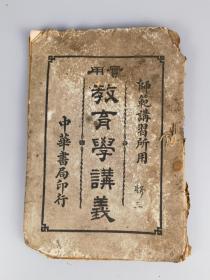 師範講習所用
實用
教育學講義
中華書局印行